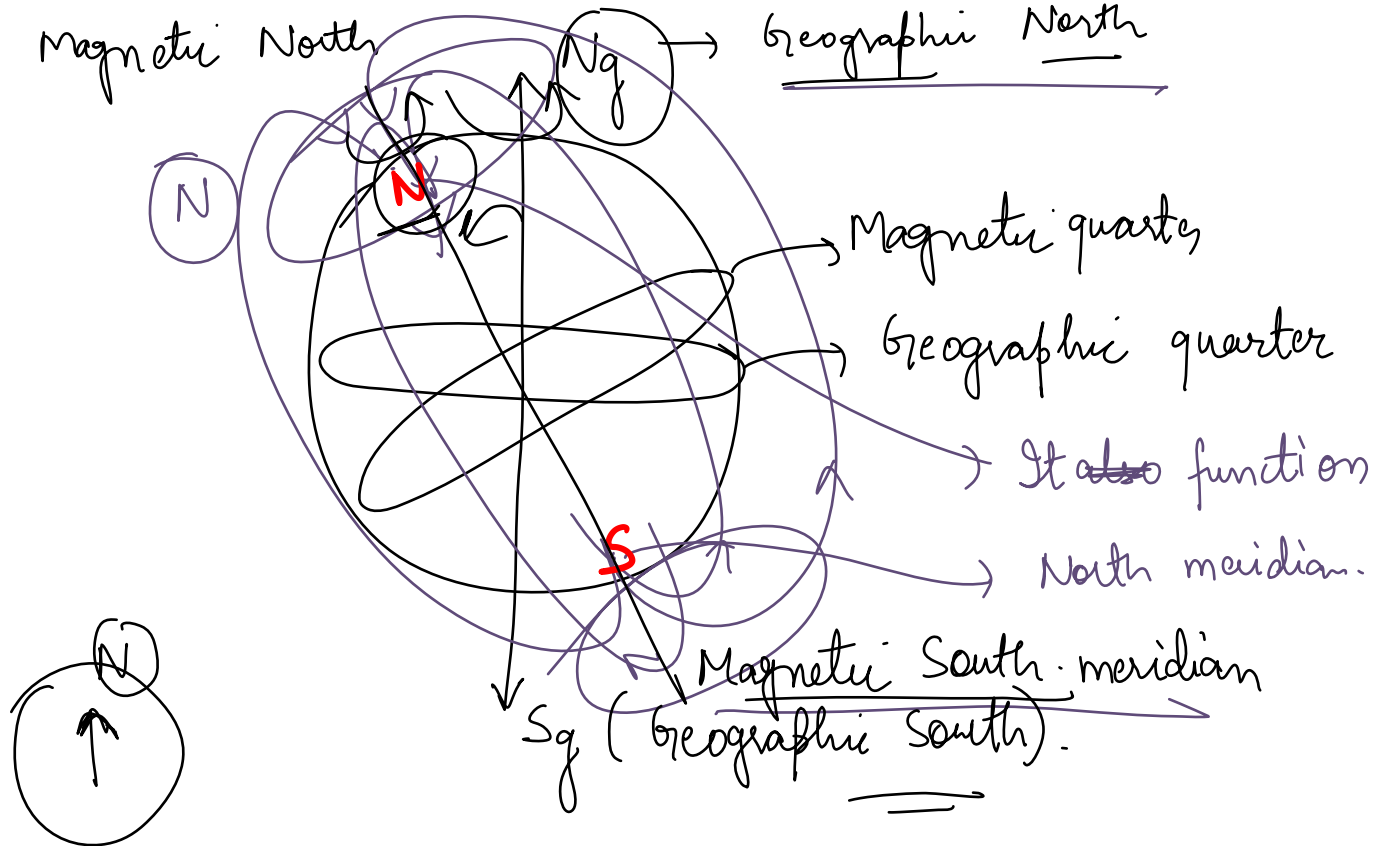 Magnetic North
Ng
Geographic North
N
N
Magnetic quarter
Geographic quarter
It also function
S
North meridian.
N
Magnetic South. meridian
Sg (Geographic South).